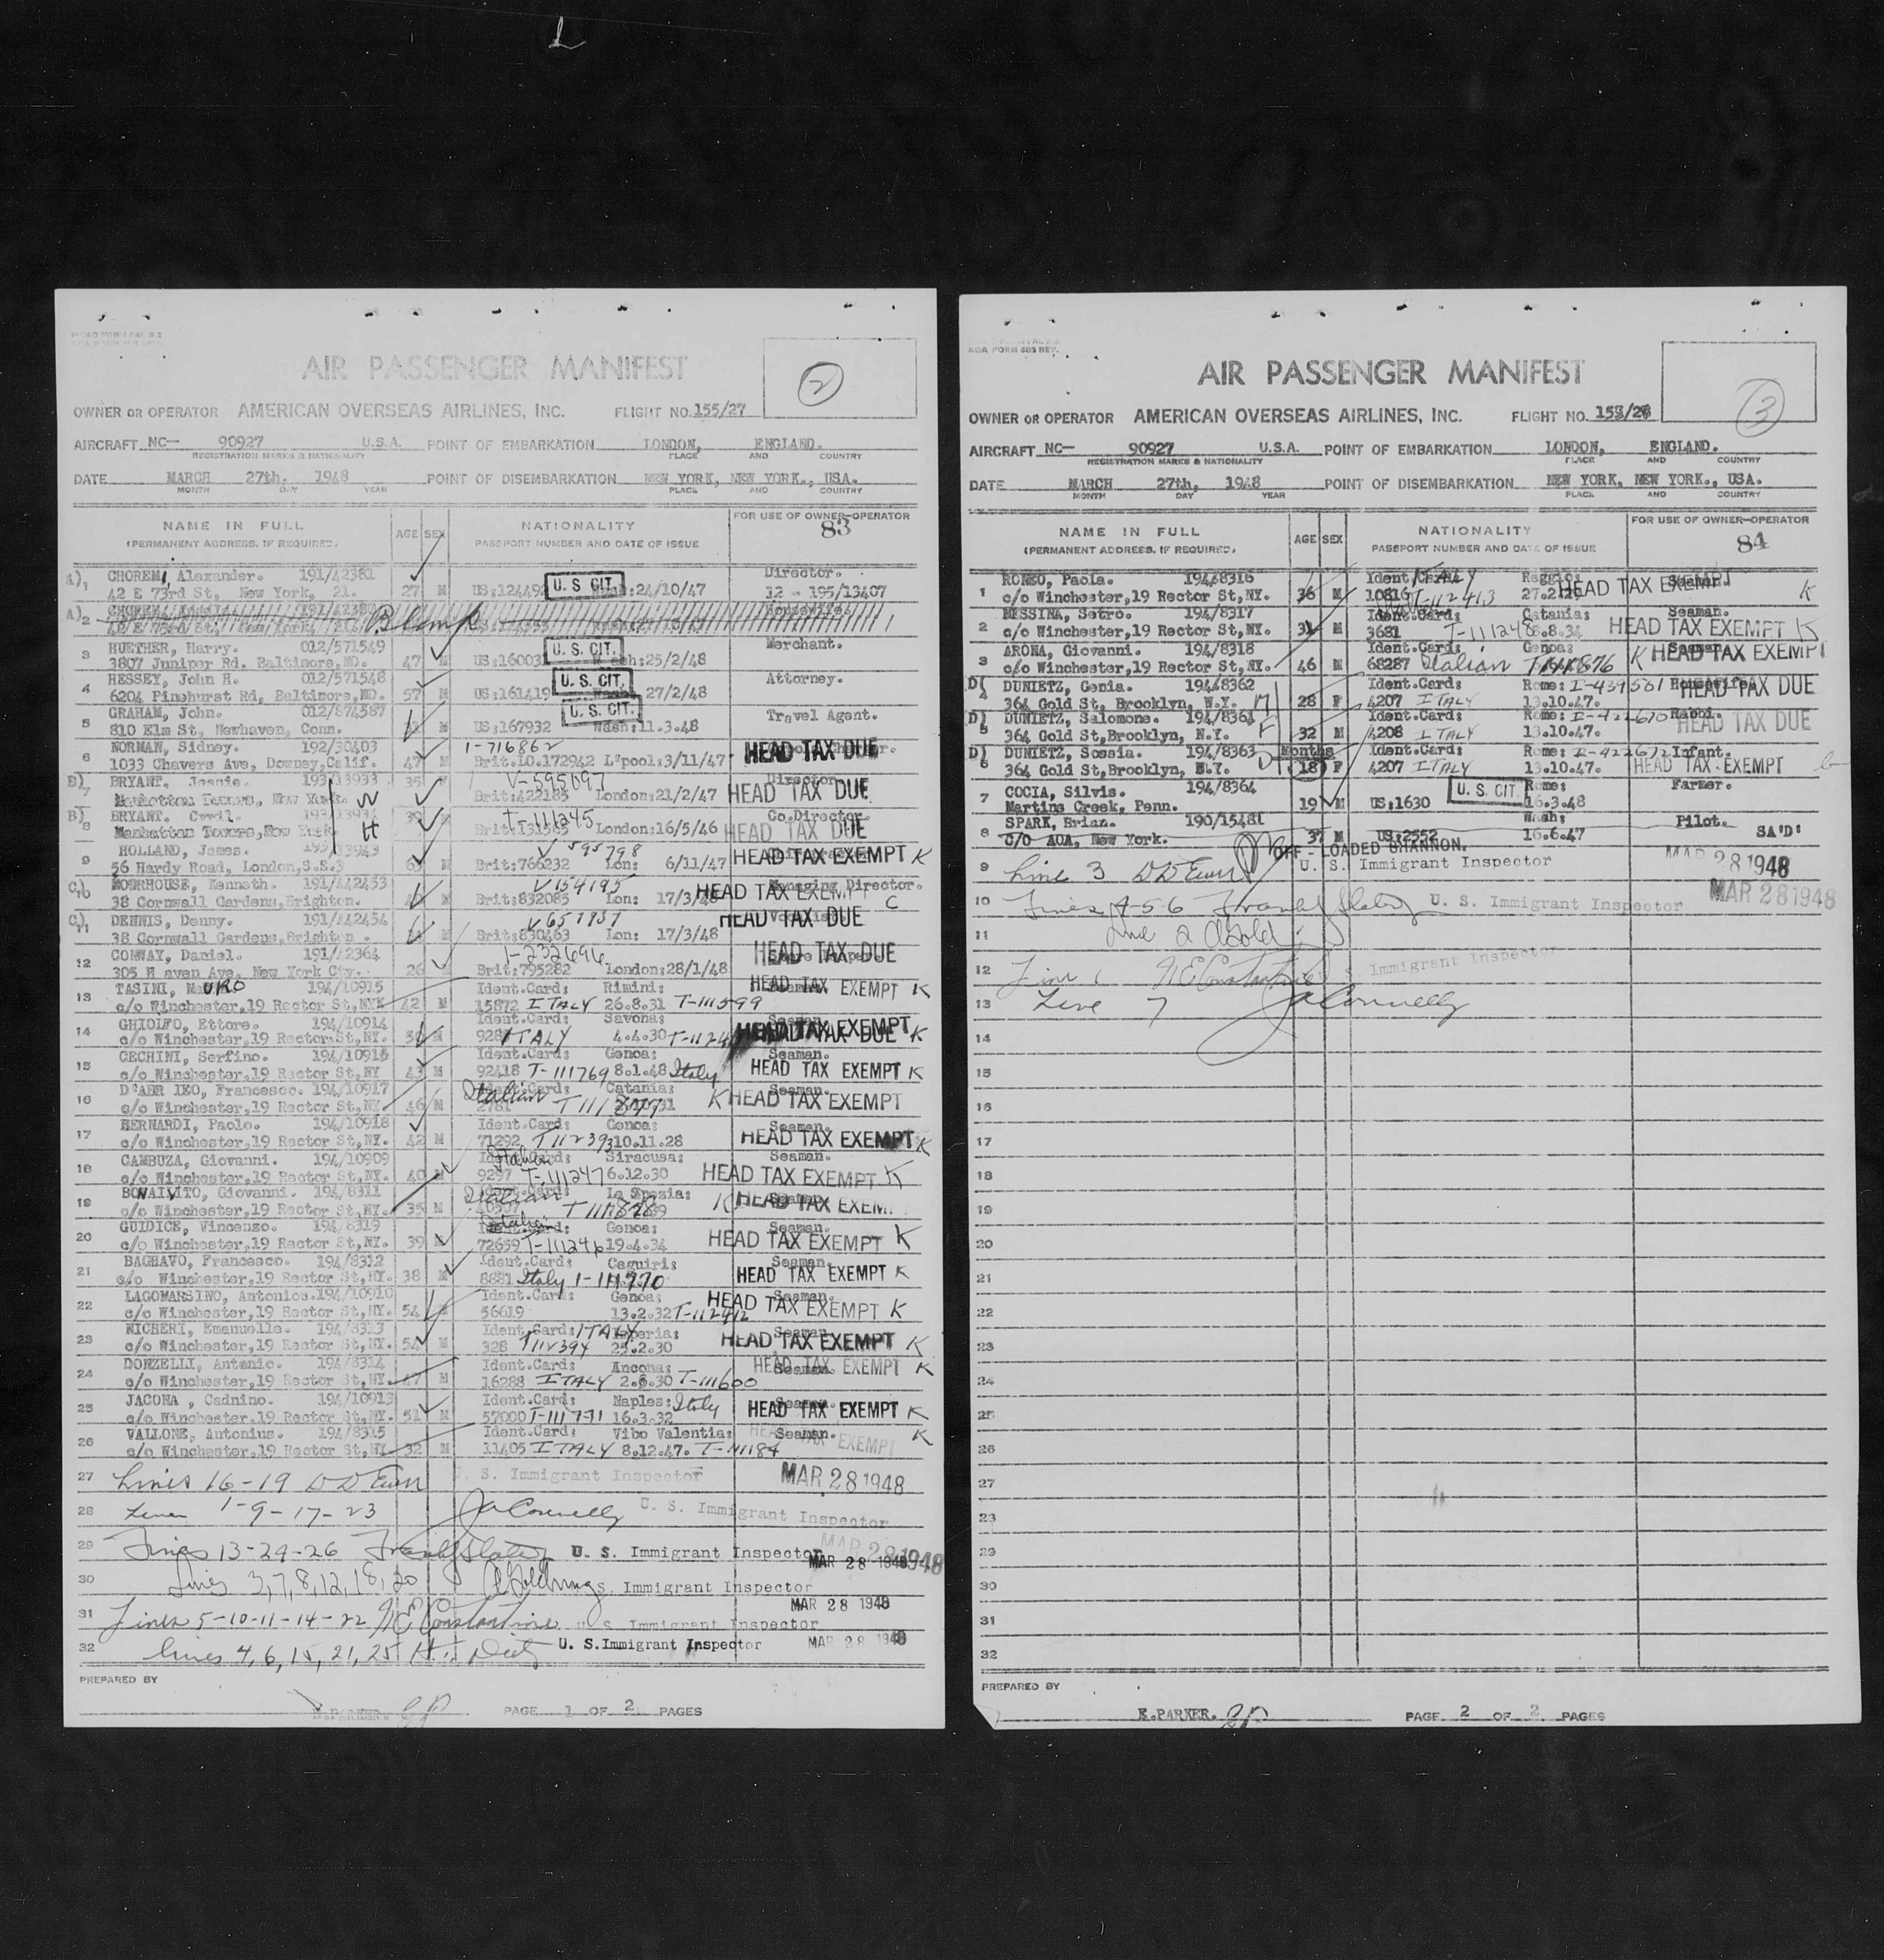 AIR PASSENGER MANIFEST
2
OWNER OR OPERATOR AMERICAN OVERSEAS AIRLINES, INC. FLIGHT NO. 155/27
AIRCRAFT NC— 90927 U.S.A. POINT OF EMBARKATION LONDON, ENGLAND.
REGISTRATION MARKS & NATIONALITY PLACE AND COUNTRY
DATE MARCH 27th, 1948 POINT OF DISEMBARKATION NEW YORK, NEW YORK., USA.
MONTH DAY YEAR PLACE AND COUNTRY
NAME IN FULL AGE SEX NATIONALITY FOR USE OF OWNER-OPERATOR
(PERMANENT ADDRESS, IF REQUIRED) PASSPORT NUMBER AND DATE OF ISSUE 83
A) 1 CHOREMI, Alexander. 191/42381 Director.
42 E 73rd St, New York, 21. 27 M US:124492 U. S. CIT. 24/10/47 12 - 195/13407
A) 2
3 RUETHER, Harry. 012/571549 U. S. CIT. Merchant.
3807 Juniper Rd, Baltimore,MD. 47 M US:160031 Wash:25/2/48
4 HESSEY, John H. 012/571548 U. S. CIT. Attorney.
6204 Pinehurst Rd, Baltimore,MD. 57 M US:161419 27/2/48
5 GRAHAM, John. 012/874587 U. S. CIT. Travel Agent.
810 Elm St, Newhaven, Conn. M US:167932 Wash:11.3.48
6 NORMAN, Sidney. 192/30403 1-716862 HEAD TAX DUE
1033 Chavers Ave, Downey,Calif. 47 M Brit.LO.172942 L'pool:3/11/47
B) 7 BRYANT. Jessie. 193/13933 35 F V-595697 Director
Manhattan Towers, New York. W Brit:422185 London:21/2/47 HEAD TAX DUE
B) 8 BRYANT. Cyril. 193/13934 39 M T-111245 Co.Director.
Manhattan Towers,New York H London:16/5/46 HEAD TAX DUE
9 HOLLAND, James. 193/13943 V 595798
56 Hardy Road, London,S.E.3 M Brit:766232 Lon: 6/11/47 HEAD TAX EXEMPT K
C) 10 MOORHOUSE, Kenneth. 191/442453 V 154195 Managing Director.
38 Cornwall Gardens,Brighton. M Brit:832085 Lon: 17/3/48 HEAD TAX EXEMPT C
C) 11 DENNIS, Denny. 191/442454 HEAD TAX DUE
38 Cornwall Gardens,Brighton. M Brit:830463 Lon: 17/3/48
12 CONWAY, Daniel. 191/42364 1-232696 HEAD TAX DUE
305 H aven Ave, New York Cty. 26 Brit:795282 London:28/1/48
13 TASINI, MaURO 194/10915 Ident.Card: Rimini: Seaman. HEAD TAX EXEMPT K
c/o Winchester,19 Rector St,NYK 42 M 15872 ITALY 26.8.31 T-111599
14 GHIOLFO, Ettore. 194/10914 Ident.Card: Savona:
c/o Winchester,19 Rector St,NY. M ITALY 4.4.30 HEAD TAX EXEMPT K
15 CECHINI, Serfino. 194/10916 Ident.Card: Genoa: Seaman.
c/o Winchester,19 Rector St,NY 43 M 92418 T-111769 8.1.48 Italy HEAD TAX EXEMPT K
16 Francesco. 194/10917 Italian Catania: Seaman.
c/o Winchester,19 Rector St,NY 46 M 2781 K HEAD TAX EXEMPT
17 BERNARDI, Paolo. 194/10918 Ident.Card: Genoa: Seaman.
c/o Winchester,19 Rector St,NY. 42 M 71292 T 112393 10.11.28 HEAD TAX EXEMPT K
18 CAMBUZA, Giovanni. 194/10909 Italian Siracusa: Seaman.
c/o Winchester,19 Rector St,NY. 40 M 9297 T-111247 6.12.30 HEAD TAX EXEMPT K
19 Giovanni. 194/8311 Italian La Spezia:
c/o Winchester,19 Rector St,NY. 35 M K HEAD TAX EXEM
20 GUIDICE, Vincenzo. 194/8319 Italian Genoa: Seaman.
c/o Winchester,19 Rector St,NY. 39 M 72659 T-111246 19.4.34 HEAD TAX EXEMPT K
21 BAGHAVO, Francesco. 194/8312 Ident.Card: Caguiri: Seaman.
c/o Winchester,19 Rector St,NY. 38 M 8881 Italy HEAD TAX EXEMPT K
22 LAGOMARSINO, Antonios. 194/10910 Ident.Card: Genoa: Seaman.
c/o Winchester,19 Rector St,NY. 54 M 56619 13.2.32 T-112412 HEAD TAX EXEMPT K
23 NICHERI, Emanuelle. 194/8313 Ident.Card: ITALY Seaman.
c/o Winchester,19 Rector St,NY. 54 M 328 T112394 25.2.30 HEAD TAX EXEMPT K
24 DONZELLI, Antonio. 194/8314 Ident.Card: Ancona: HEAD TAX EXEMPT K
c/o Winchester,19 Rector St,NY. 47 M 16288 ITALY 2.6.30 T-111600 Seaman.
25 JACONA , Cadnino. 194/10913 Ident.Card: Naples: Italy Seaman.
c/o Winchester,19 Rector St,NY. 51 M 57000 T-111771 16.3.32 HEAD TAX EXEMPT K
26 VALLONE, Antonius. 194/8315 Ident.Card: Vibo Valentia: Seaman. K
c/o Winchester,19 Rector St,NY 32 M 11405 ITALY 8.12.47. T-111184 HEAD TAX EXEMPT
27 Lines 16-19 U. S. Immigrant Inspector MAR 28 1948
28 Lines 1-9-17-23 JaConnelly U. S. Immigrant Inspector
29 Lines 13-24-26 U. S. Immigrant Inspector MAR 28 1948
30 Lines 3,7,8,12,18,20 S. Immigrant Inspector
MAR 28 1948
31 Lines 5-10-11-14-22 N E Constantine U. S. Immigrant Inspector
32 Lines 4,6,15,21,25 U. S.Immigrant Inspector MAR 28 1948
PREPARED BY
PAGE 1 OF 2 PAGES
AOA FORM 503 REV.
AIR PASSENGER MANIFEST
3
OWNER OR OPERATOR AMERICAN OVERSEAS AIRLINES, INC. FLIGHT NO.
AIRCRAFT NC— 90927 U.S.A. POINT OF EMBARKATION LONDON, ENGLAND.
REGISTRATION MARKS & NATIONALITY PLACE AND COUNTRY
DATE MARCH 27th, 1948 POINT OF DISEMBARKATION NEW YORK, NEW YORK., USA.
MONTH DAY YEAR PLACE AND COUNTRY
NAME IN FULL AGE SEX NATIONALITY FOR USE OF OWNER-OPERATOR
(PERMANENT ADDRESS, IF REQUIRED) PASSPORT NUMBER AND DATE OF ISSUE 84
1 ROMEO, Paola. 194/8316 Ident.Card: ITALY Reggio: Seaman. HEAD TAX EXEMPT
c/o Winchester,19 Rector St,NY. 36 M 10816 T-112413 K
2 MESSINA, Setro. 194/8317 Ident.Card: Catania: Seaman.
c/o Winchester,19 Rector St,NY. M 3681 8.8.34 HEAD TAX EXEMPT K
3 ARONA, Giovanni. 194/8318 Ident.Card: Genoa: Seaman.
c/o Winchester,19 Rector St,NY. 46 M 68287 Italian K HEAD TAX EXEMPT
D) 4 DUNIETZ, Genia. 194/8362 Ident.Card: Rome: I-439561 Housewife HEAD TAX DUE
364 Gold St, Brooklyn, N.Y. M 28 F 4207 ITALY 13.10.47.
D) 5 DUNIETZ, Salomone. 194/8361 Ident.Card: Rome: I-422670 Rabbi. HEAD TAX DUE
364 Gold St,Brooklyn, N.Y. F 32 M 4208 ITALY 13.10.47.
D) 6 DUNIETZ, Sossia. 194/8363 Months Ident.Card: Rome: I-422672 Infant.
364 Gold St,Brooklyn, N.Y. D (18) F 4207 ITALY 13.10.47. HEAD TAX EXEMPT
7 COCIA, Silvis. 194/8364 U. S. CIT. Rome: Farmer.
Martins Creek, Penn. 19 M US:1630 16.3.48
8 SPARK, Brian. 190/15481 Wash: Pilot.
C/O AOA, New York. 37 M US:2552 16.6.47 SA'D'
OFF - LOADED SHANNON.
9 Line 3 U. S. Immigrant Inspector MAR 28 1948
10 Lines 4-5-6 U. S. Immigrant Inspector MAR 28 1948
11 Line 2
12 Line 1 N E Constantine U. S. Immigrant Inspector
13 Line 7 JaConnelly
14
15
16
17
18
19
20
21
22
23
24
25
26
27
23
29
30
31
32
PREPARED BY
E.PARKER.
PAGE 2 OF 2 PAGES